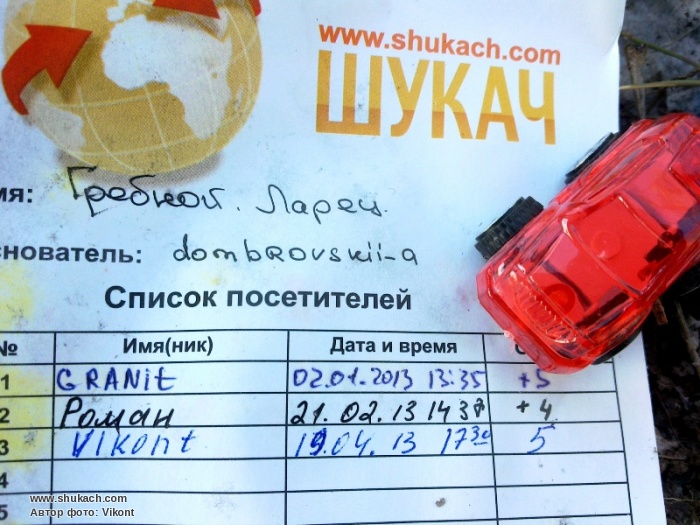 www.shukach.com
ШУКАЧ
мя: Гребной. Ларец.
снователь: dombrovskii-a
Список посетителей
№ Имя(ник) Дата и время
1 GRANit 02.01.2013 13:35 +5
2 Роман 21.02.13 14 37 +4
3 Vikont 19.04.13 17 30 5
4
5
www.shukach.com
Автор фото: Vikont